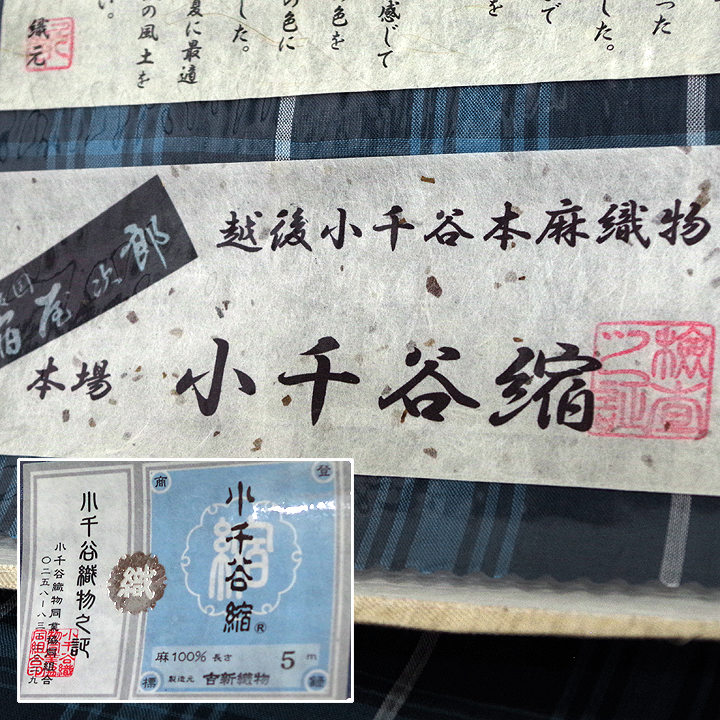 った
で
した。
感じて
色を
の色に
した。
夏に最適
の風土を
い。
織元
越後小千谷本麻織物
宿屋次郎
本場 小千谷縮
検査之証
小千谷織物之証
小千谷織物同業協同組合
〇二五八-八三
織
登
商
録
標
縮
小千谷縮®
麻100% 長さ 5m
製造元 吉新織物